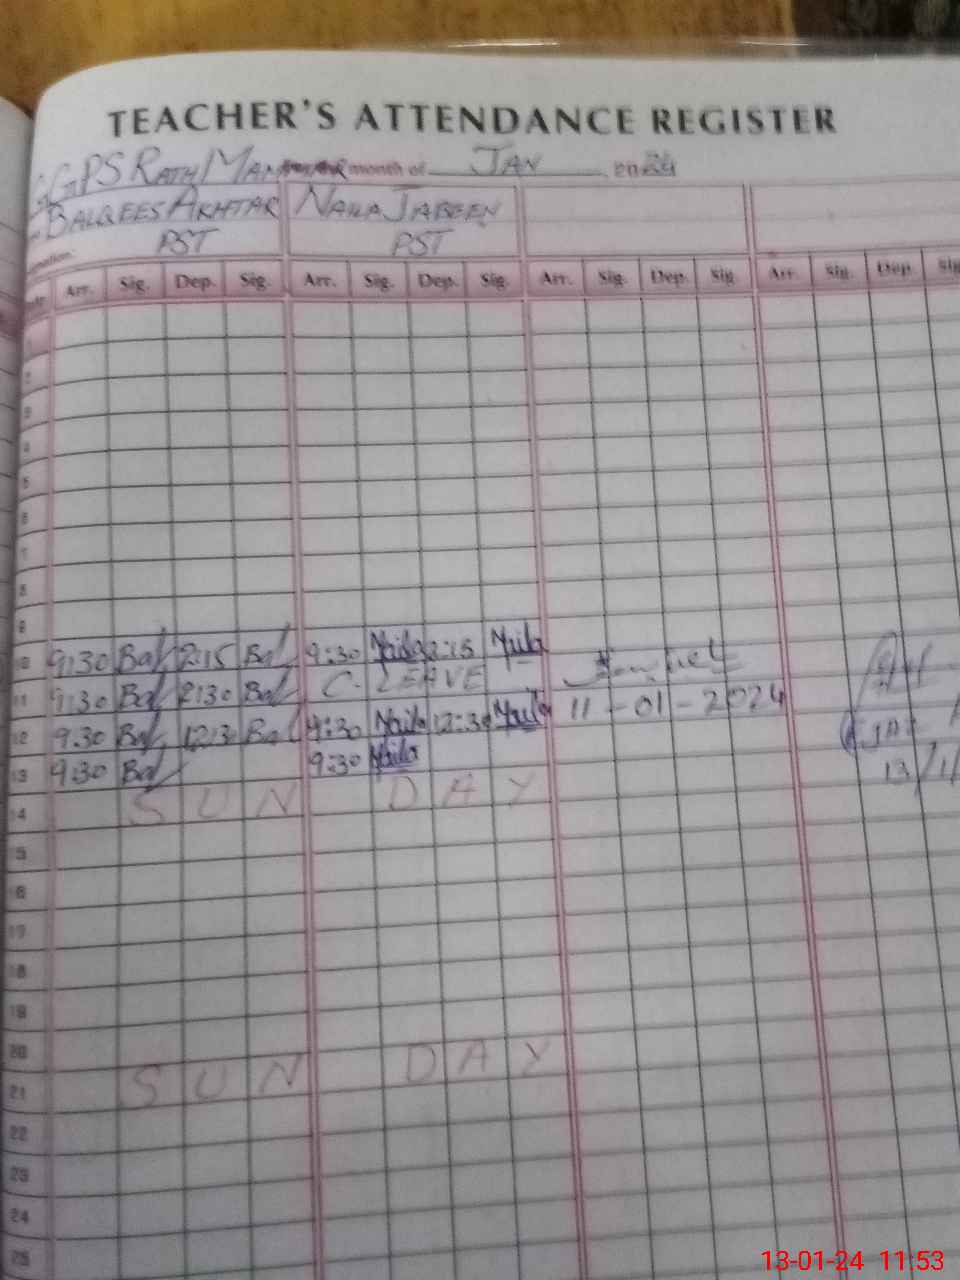 TEACHER'S ATTENDANCE REGISTER
GGPS RATH month of JAN, 2024
BALQEES AKHTAR NAILA JABEEN
PST PST
Arr. Sig. Dep. Sig. Arr. Sig. Dep. Sig. Arr. Sig. Dep. Sig. Arr. Sig. Dep. Sig
1
2
3
4
5
6
7
8
9
10 9:30 Bal 2:15 Bal 9:30 Naila 2:15 Naila
11 9:30 Bal 2:30 Bal C. LEAVE 11-01-2024
12 9:30 Bal 12:30 Bal 9:30 Naila 12:30 Naila
13 9:30 Bal 9:30 Naila 13/1/
14 SUN DAY
15
16
17
18
19
20
21 SUN DAY
22
23
24
25
13-01-24 11:53